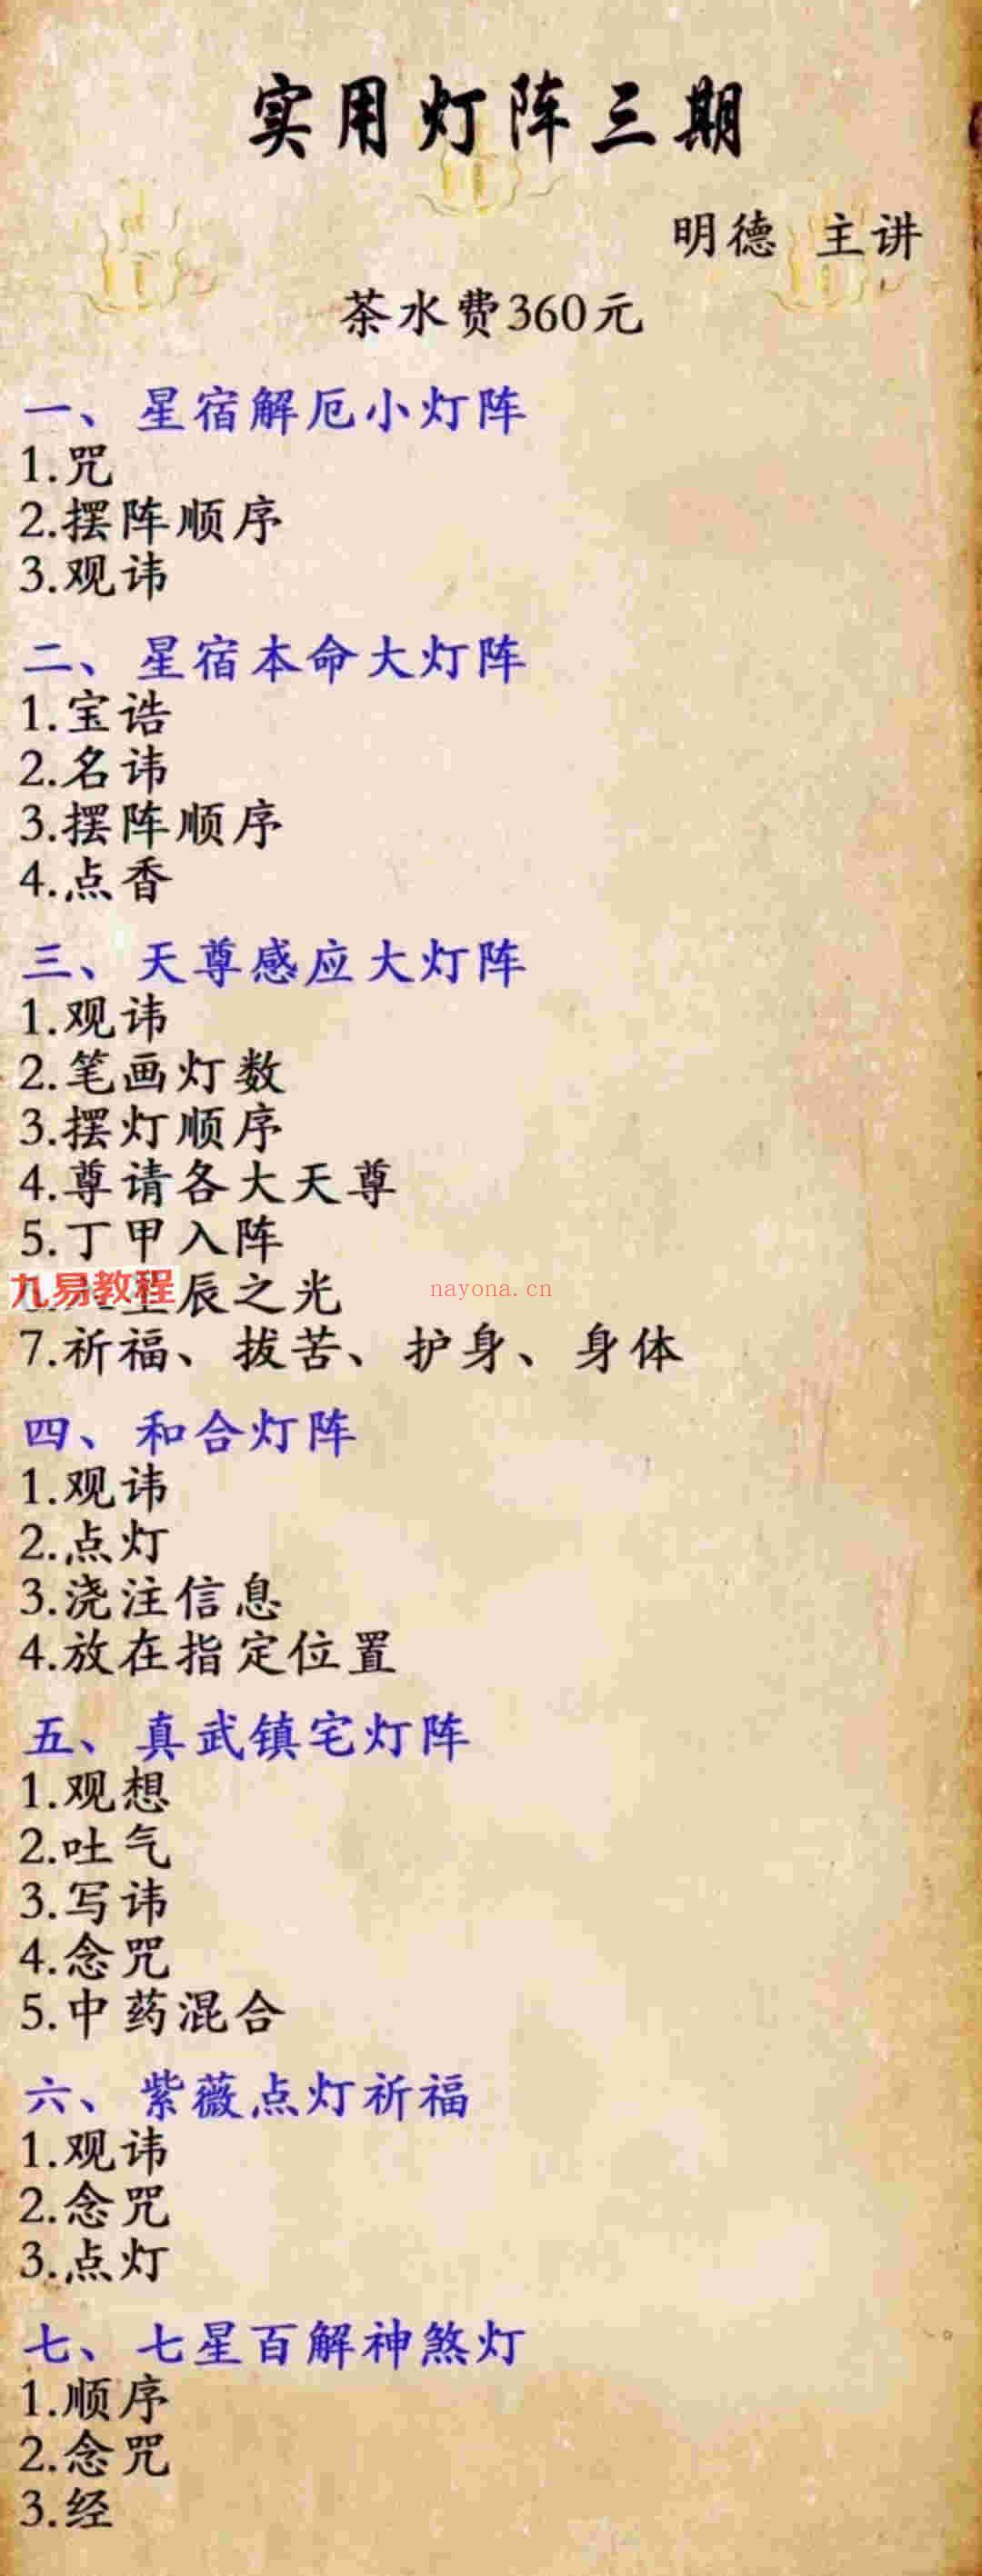 实用灯阵三期
明德 主讲
茶水费360元
一、星宿解厄小灯阵
1.咒
2.摆阵顺序
3.观讳
二、星宿本命大灯阵
1.宝诰
2.名讳
3.摆阵顺序
4.点香
三、天尊感应大灯阵
1.观讳
2.笔画灯数
3.摆灯顺序
4.尊请各大天尊
5.丁甲入阵
九易教程
辰之光
nayona.cn
7.祈福、拔苦、护身、身体
四、和合灯阵
1.观讳
2.点灯
3.浇注信息
4.放在指定位置
五、真武镇宅灯阵
1.观想
2.吐气
3.写讳
4.念咒
5.中药混合
六、紫薇点灯祈福
1.观讳
2.念咒
3.点灯
七、七星百解神煞灯
1.顺序
2.念咒
3.经